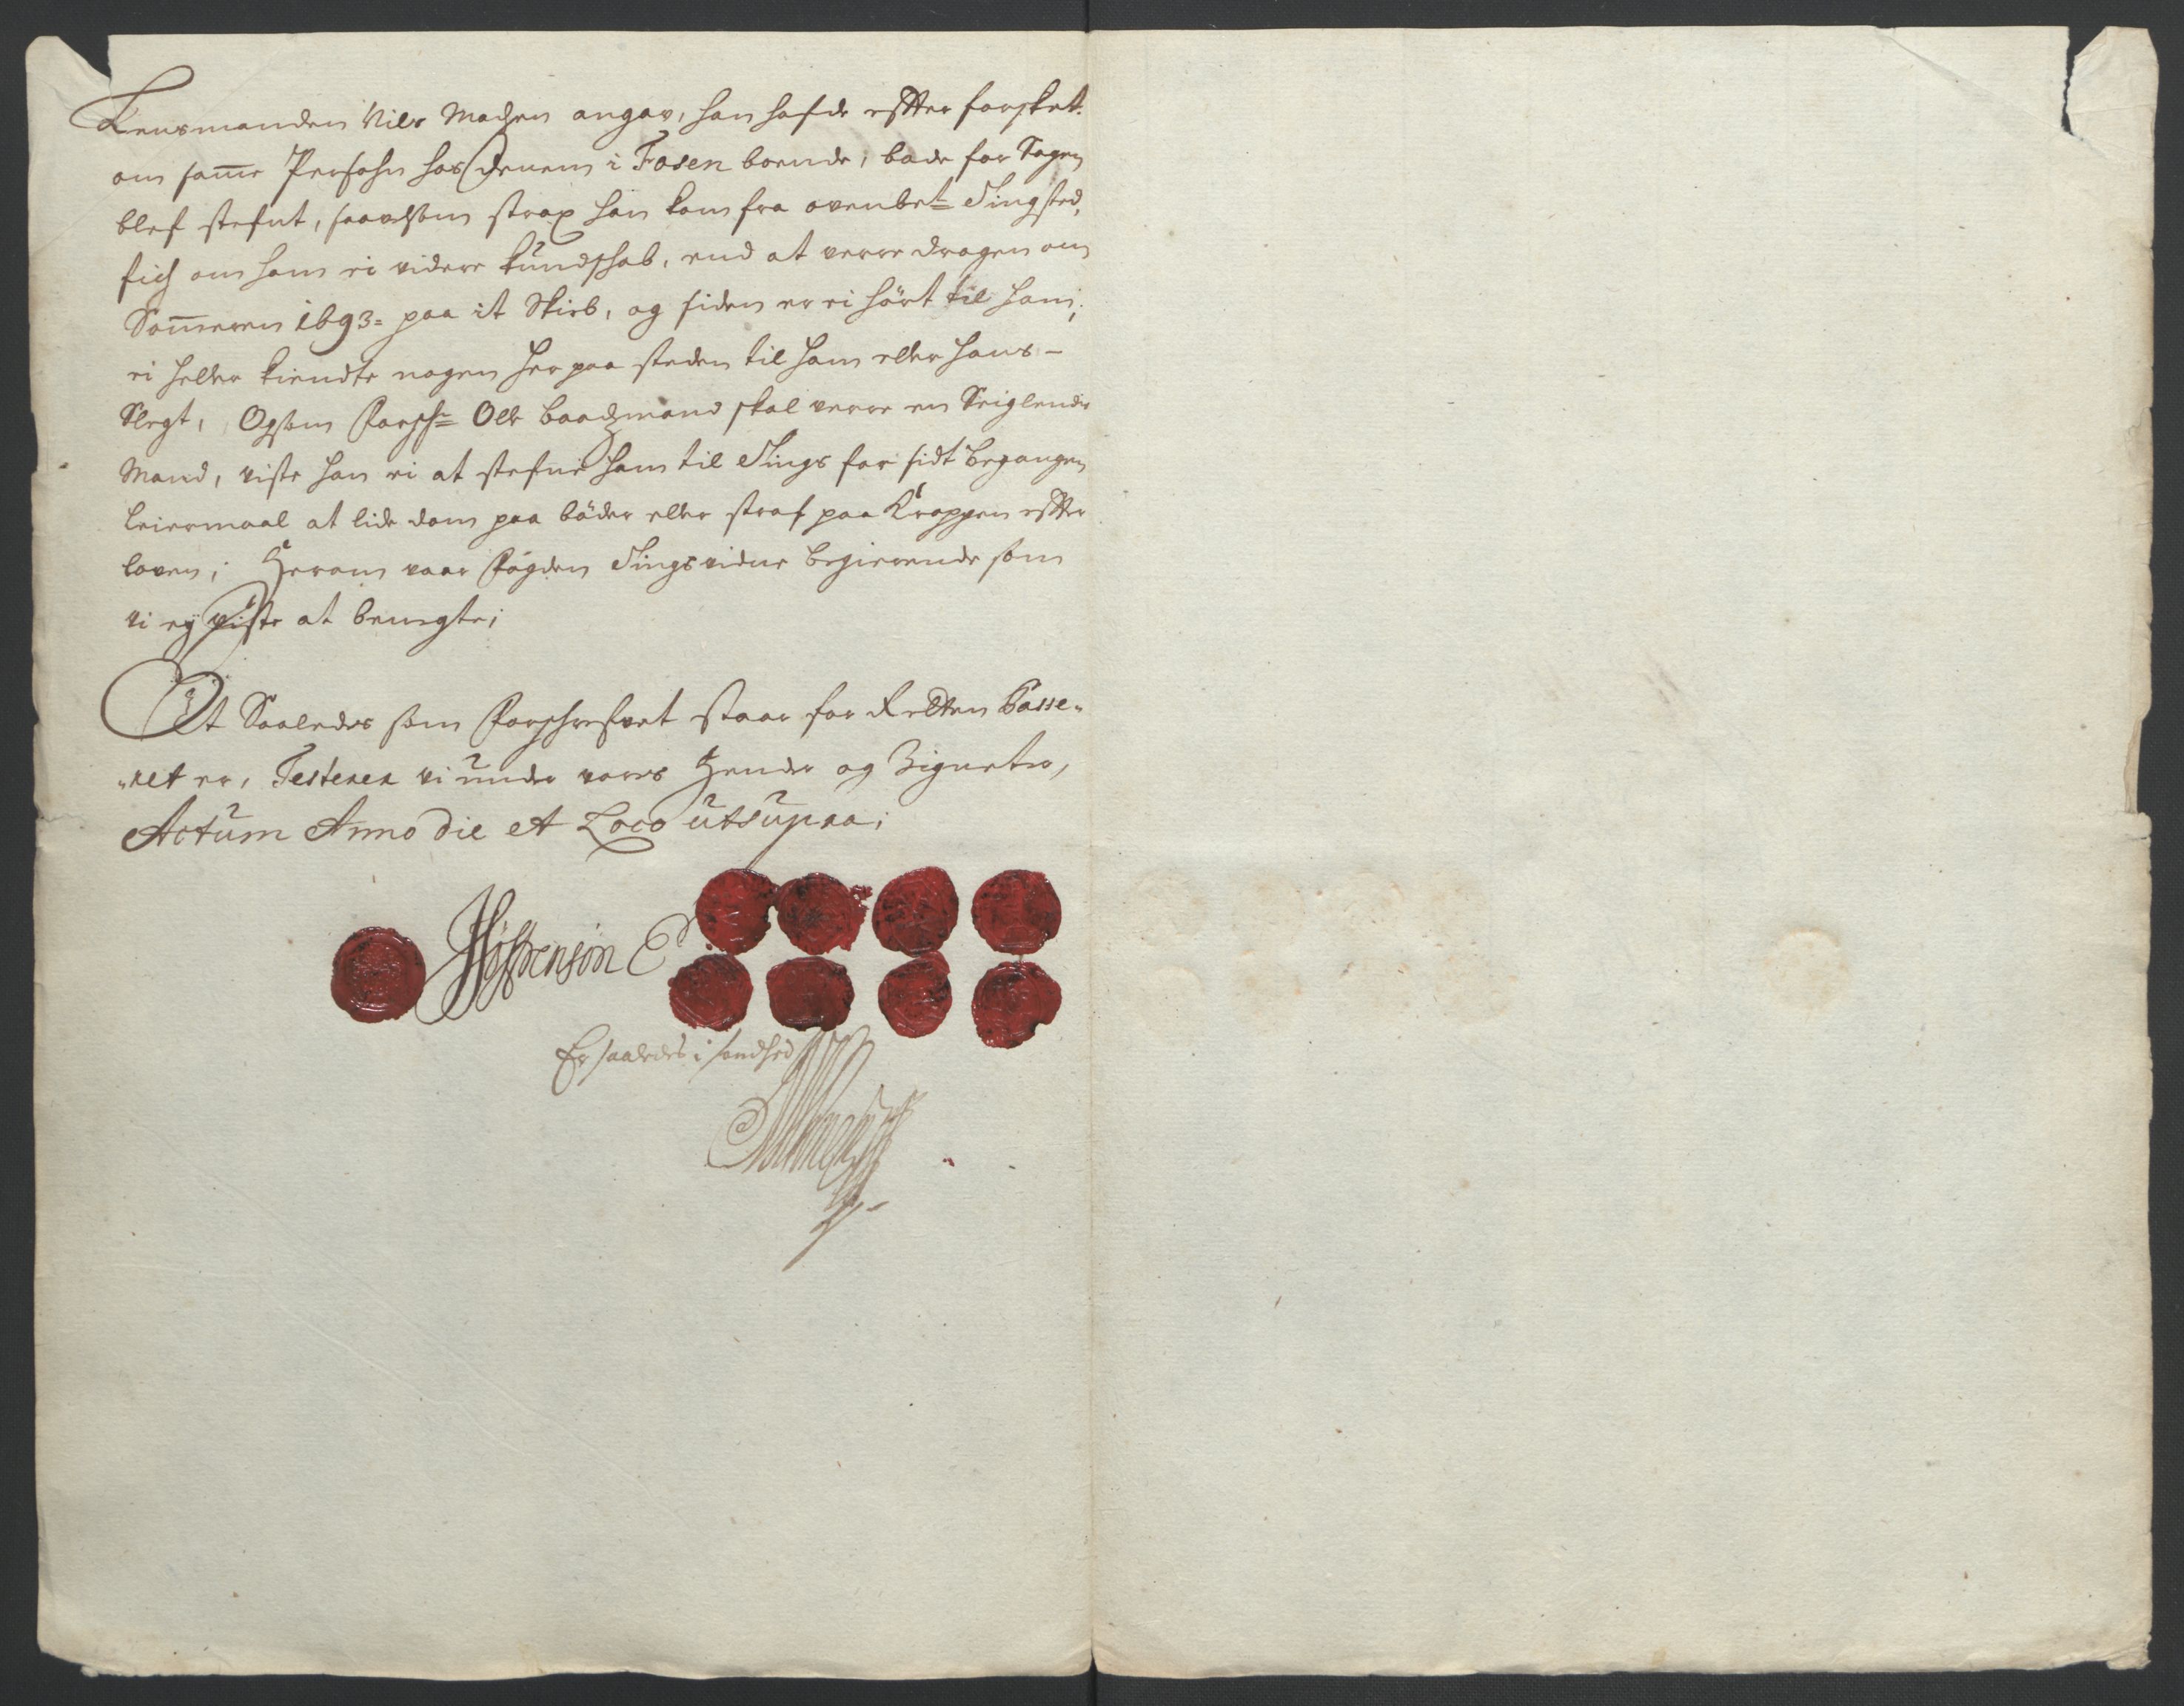 Lensmanden Nils Madsen angav, han hafde effter forsket
om samme Persohn hos dennem i Fosen boende, bode for Sagen
blef stefnt, saavelsom strax han kom fra ovenbet Tingsted,
fich om ham ei videre kundschab, end at verre dragen om
Sommeren 1693 = paa it Skieb, og siden er ei hört til ham,
ei heller kiendte nogen her paa steden til ham eller hans -
Slegt, Og som Forsch Olle Baadzmand skal verre en
Mand, viste han ei at stefne ham til Tings for sidt begangen
Leiermaal at lide dom paa böder eller straf paa Kroppen effter
loven; Herom vaar Fogden Tingsvidne begierende som
vi ey viste at benegte;
At Saaledes som Forschrefvet staar for Retten Passe-
ret er, Testerer vi under vores Hender og Zigneter,
Actum Anno die et Loco utsupra;
Er saaledes i sandhed